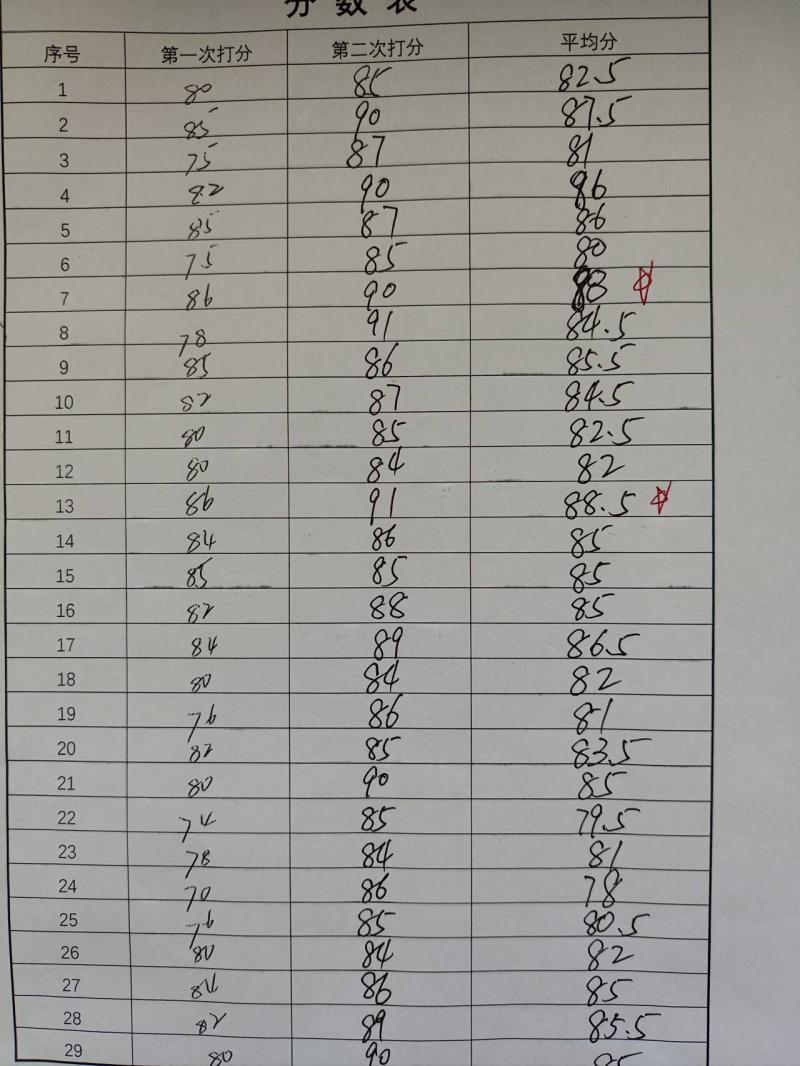 分数表
序号 第一次打分 第二次打分 平均分
1 80 85 82.5
2 85 90 87.5
3 75 87 81
4 82 90 86
5 85 87 86
6 75 85 80
7 86 90 88
8 78 91 84.5
9 85 86 85.5
10 82 87 84.5
11 80 85 82.5
12 80 84 82
13 86 91 88.5
14 84 86 85
15 85 85 85
16 82 88 85
17 84 89 86.5
18 80 84 82
19 76 86 81
20 82 85 83.5
21 80 90 85
22 74 85 79.5
23 78 84 81
24 70 86 78
25 76 85 80.5
26 80 84 82
27 84 86 85
28 82 89 85.5
29 80 90 85